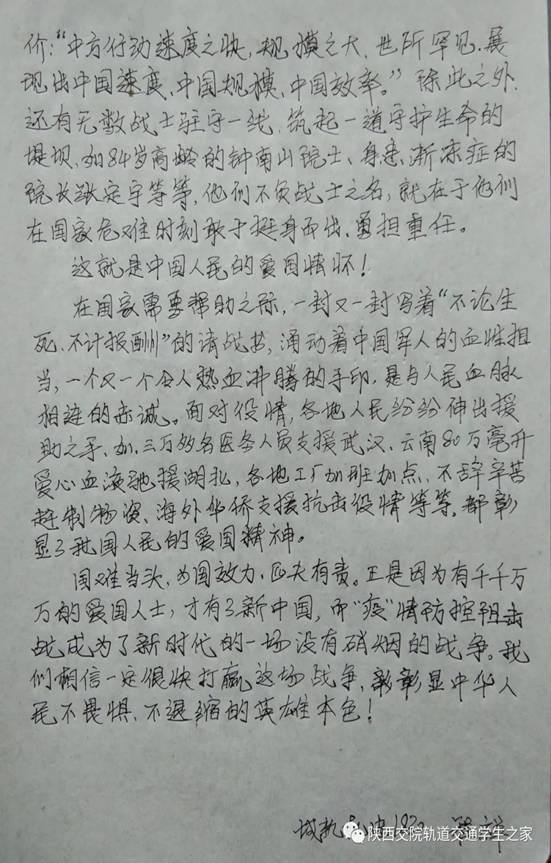 价:“中方行动速度之快,规模之大,世所罕见.展
现出中国速度、中国规模、中国效率。”除此之外,
还有无数战士驻守一线,筑起一道守护生命的
堤坝.如84岁高龄的钟南山院士、身患渐冻症的
院长张定宇等等,他们不负战士之名,就在于他们
在国家危难时刻敢于挺身而出.勇担重任。
这就是中国人民的爱国情怀!
在国家需要帮助之际,一封又一封写着“不论生
死.不计报酬”的请战书,涌动着中国军人的血性担
当,一个又一个令人热血沸腾的手印,是与人民血脉
相连的赤诚。面对役情,各地人民纷纷伸出援
助之手、如.三万多名医务人员支援武汉、云南80万毫升
爱心血液驰援湖北,各地工厂加班加点、不辞辛苦
赶制物资、海外华侨支援抗击役情等等。都彰
显了我国人民的爱国精神。
国难当头,为国效力,匹夫有责。正是因为有千千万
万的爱国人士,才有了新中国,而“疫”情防控阻击
战成为了新时代的一场没有硝烟的战争。我
们相信一定很快打赢这场战争,彰显中华人
民不畏惧、不退缩的英雄本色!
城轨
陕西交院轨道交通学生之家